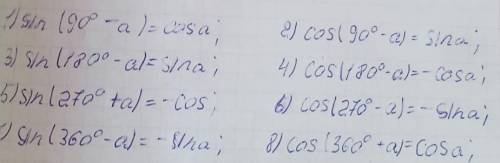 1) sin (90° - a) = cosa;
2) cos(90° - a) = sina;
3) sin(180° - a) = sina;
4) cos(180° - a) = - cosa;
5) sin(270° + a) = - cos;
6) cos(270° - a) = - sina;
) sin(360° - a) = - sina;
8) cos(360° + a) = cosa;